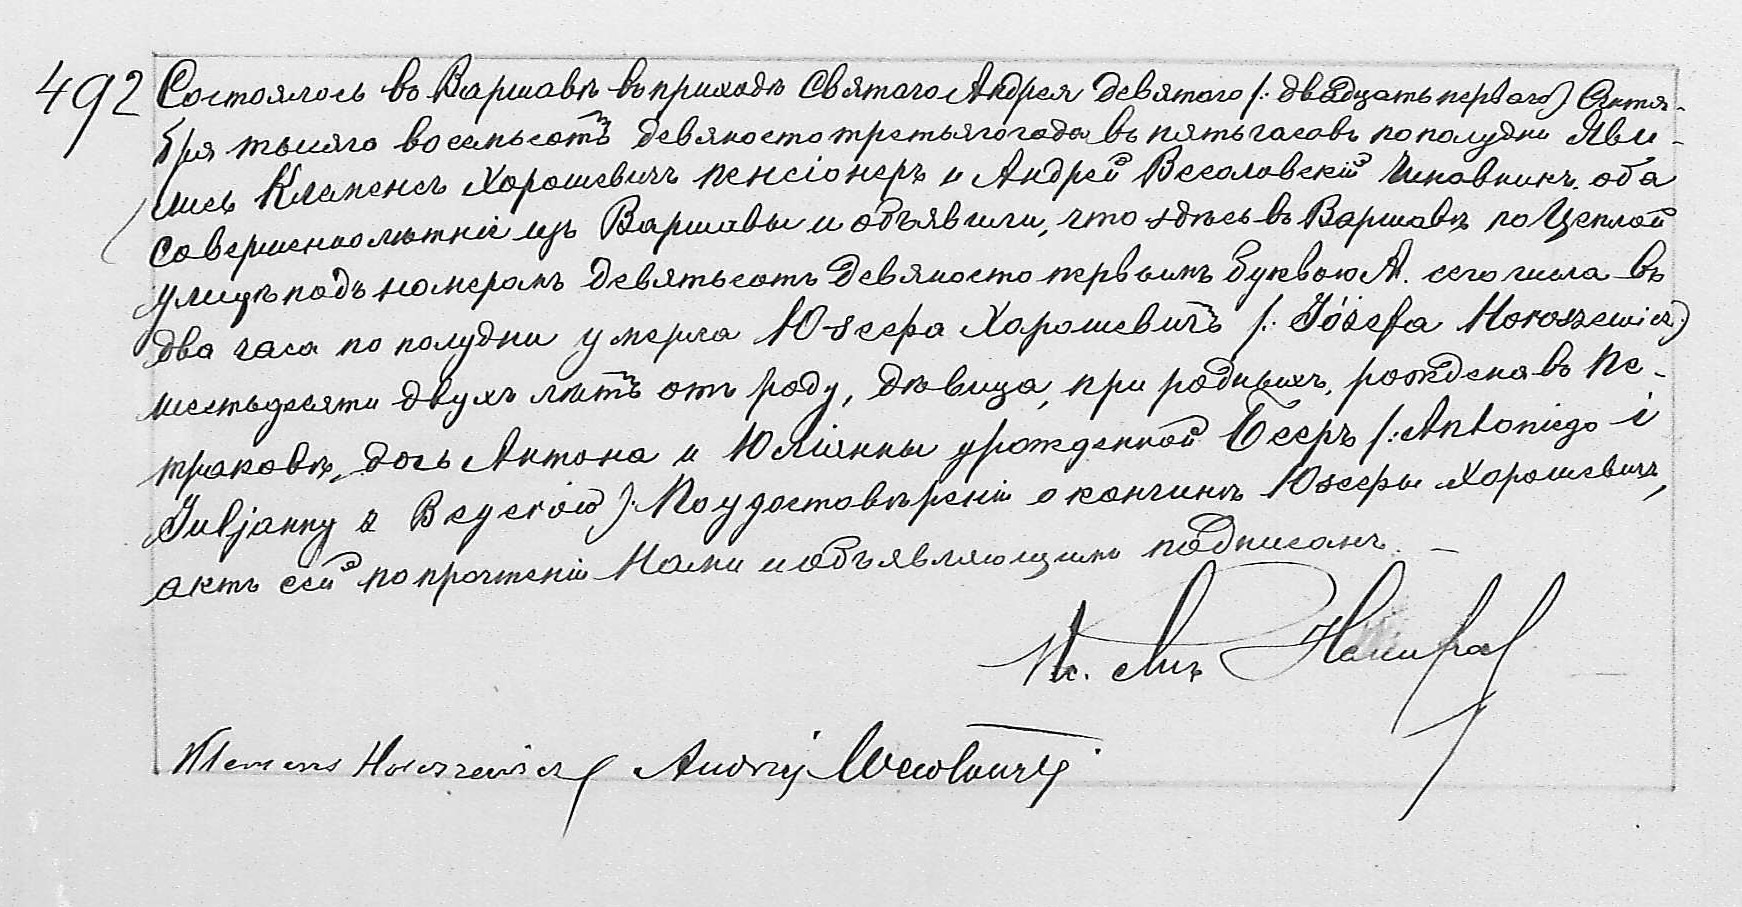 492
Состоялось въ Варшавѣ въ приходѣ Святаго Андрея девятаго /: двадцать перваго) Сентя-
бря тысяча восемьсотъ девяносто третьяго года въ пять часовъ по полудни. Яви-
лись Клеменсъ Хорошевичъ пенсіонеръ и Андрей Весоловскій чиновникъ, оба
совершеннолѣтніе изъ Варшавы и объявили, что здѣсь въ Варшавѣ по Цеплой
улицѣ подъ номеромъ девятьсотъ девяносто первымъ буквою А. сего числа въ
два часа по полудни умерла Юзефа Хорошевичъ /: Józefa Horoszewicz)
шестьдесяти двухъ лѣтъ отъ роду, дѣвица, при родныхъ, рождена въ Пе-
траковѣ, дочь Антона и Юліянны урожденной Бееръ /: Antoniego i
Juljanny z Beyerów) По удостовѣреніи о кончинѣ Юзефы Хорошевичъ,
актъ сей по прочтеніи Нами и объявляющими подписанъ. —
Klemens Horoszewicz Andrzej Wesołowski